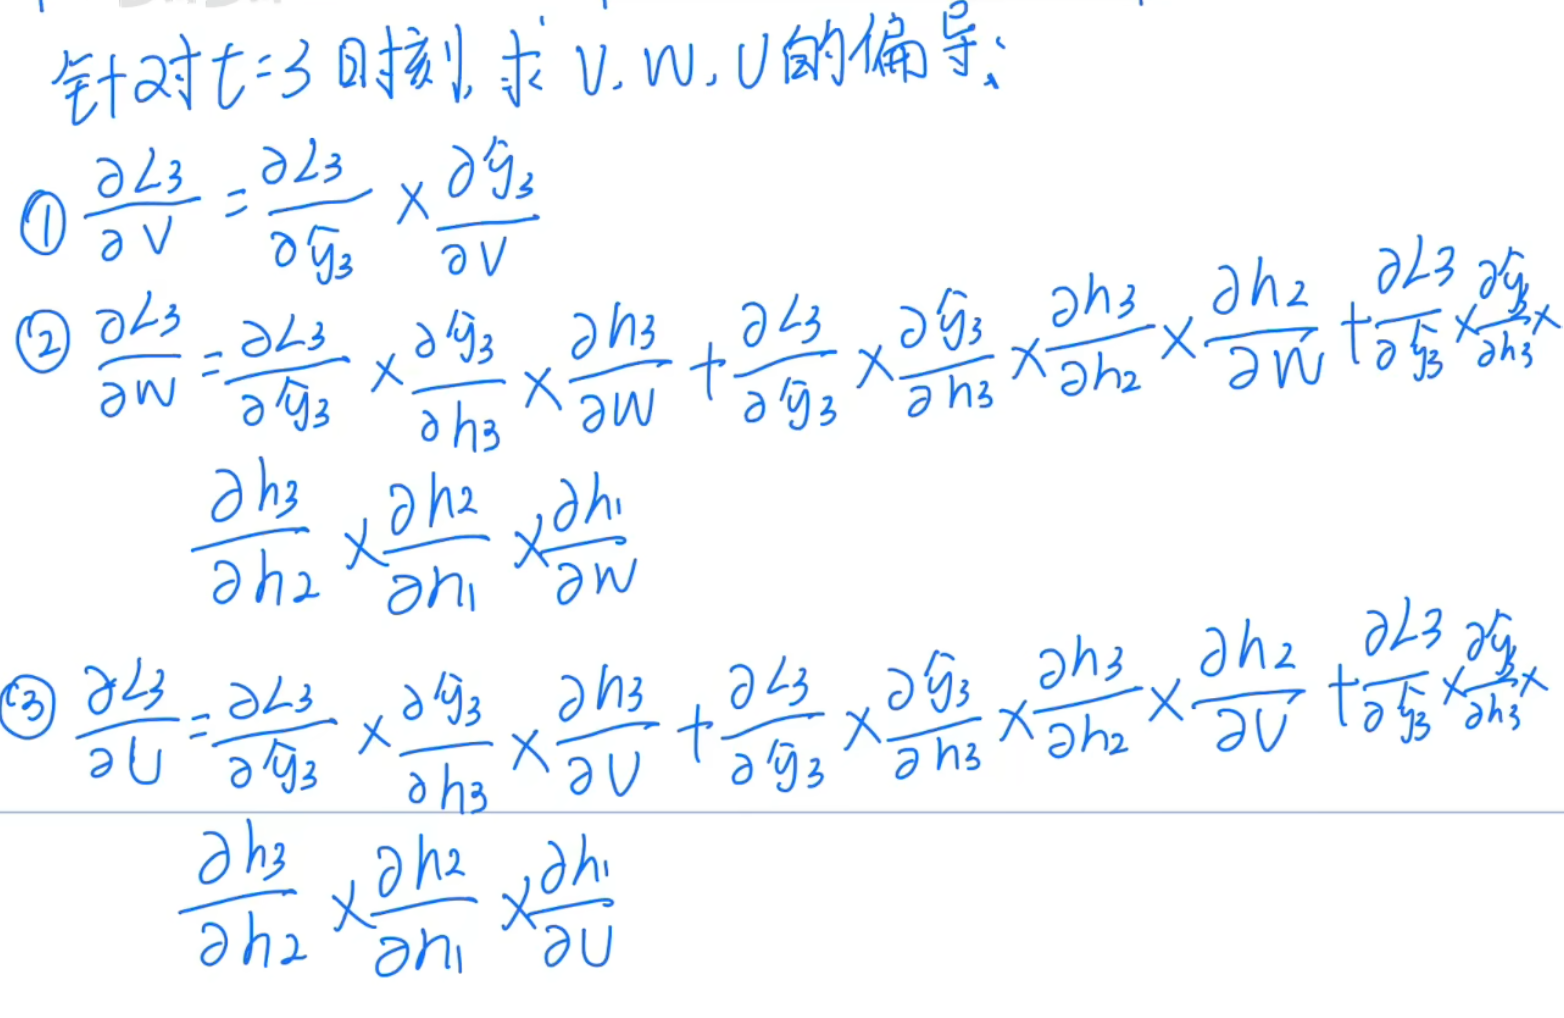 针对t=3时刻,求V.W,U的偏导:
① ∂L3/∂V = ∂L3/∂ŷ3 × ∂ŷ3/∂V
② ∂L3/∂W = ∂L3/∂ŷ3 × ∂ŷ3/∂h3 × ∂h3/∂W + ∂L3/∂ŷ3 × ∂ŷ3/∂h3 × ∂h3/∂h2 × ∂h2/∂W + ∂L3/∂ŷ3 × ∂ŷ3/∂h3 ×
∂h3/∂h2 × ∂h2/∂h1 × ∂h1/∂W
③ ∂L3/∂U = ∂L3/∂ŷ3 × ∂ŷ3/∂h3 × ∂h3/∂U + ∂L3/∂ŷ3 × ∂ŷ3/∂h3 × ∂h3/∂h2 × ∂h2/∂U + ∂L3/∂ŷ3 × ∂ŷ3/∂h3 ×
∂h3/∂h2 × ∂h2/∂h1 × ∂h1/∂U